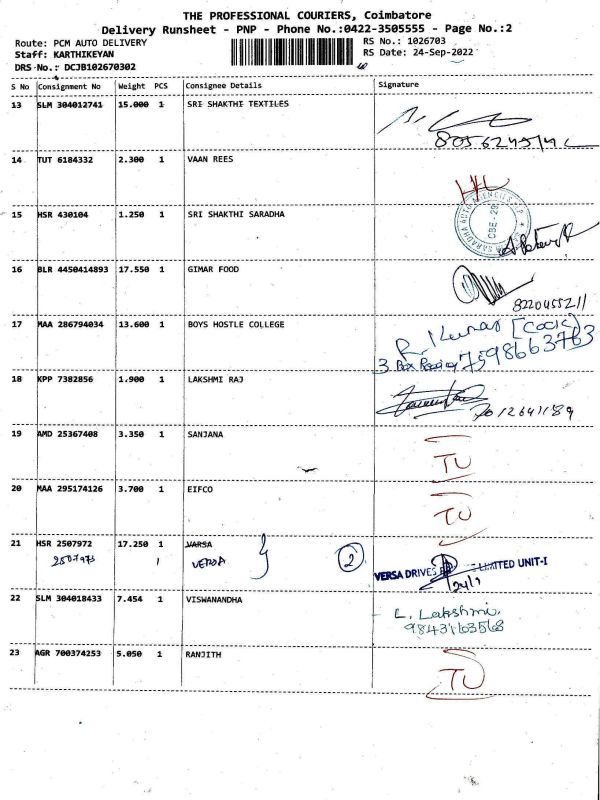 THE PROFESSIONAL COURIERS, Coimbatore
Delivery Runsheet - PNP - Phone No.:0422-3505555 - Page No.:2
Route: PCM AUTO DELIVERY RS No.: 1026703
Staff: KARTHIKEYAN RS Date: 24-Sep-2022
DRS No.: DCJB102670302
S No Consignment No Weight PCS Consignee Details Signature
13 SLM 304012741 15.000 1 SRI SHAKTHI TEXTILES
14 TUT 6184332 2.300 1 VAAN REES
15 HSR 430104 1.250 1 SRI SHAKTHI SARADHA
CBE - 29
16 BLR 4450414893 17.550 1 GIMAR FOOD
8220455211
17 MAA 286794034 13.600 1 BOYS HOSTLE COLLEGE
R. Kumar [Cook]
3 Box 7598663763
18 KPP 7382856 1.900 1 LAKSHMI RAJ
19 AMD 25367408 3.350 1 SANJANA
TU
20 MAA 295174126 3.700 1 EIFCO
TU
21 HSR 2507972 17.250 1 VARSA
2507973 1 VERSA 2
VERSA DRIVES LIMITED UNIT-I
22 SLM 304018433 7.454 1 VISWANANDHA
L. Lakshmi
9843163568
23 AGR 700374253 5.050 1 RANJITH
TU